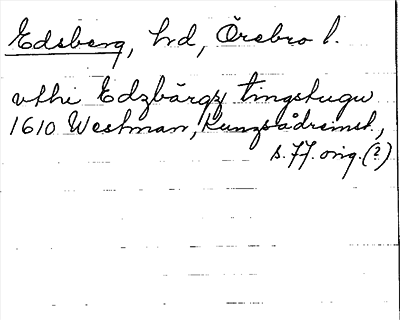 Edsberg, hd, Örebro l.
vthi Edzbärgz tingstugu
1610 Westman, Kungsådreinst.,
s. 77. orig. (?)